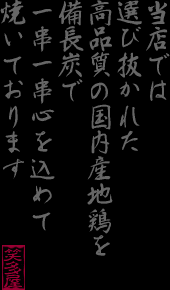 当店では
選び抜かれた
高品質の国内産地鶏を
備長炭で
一串一串心を込めて
焼いております
笑多屋